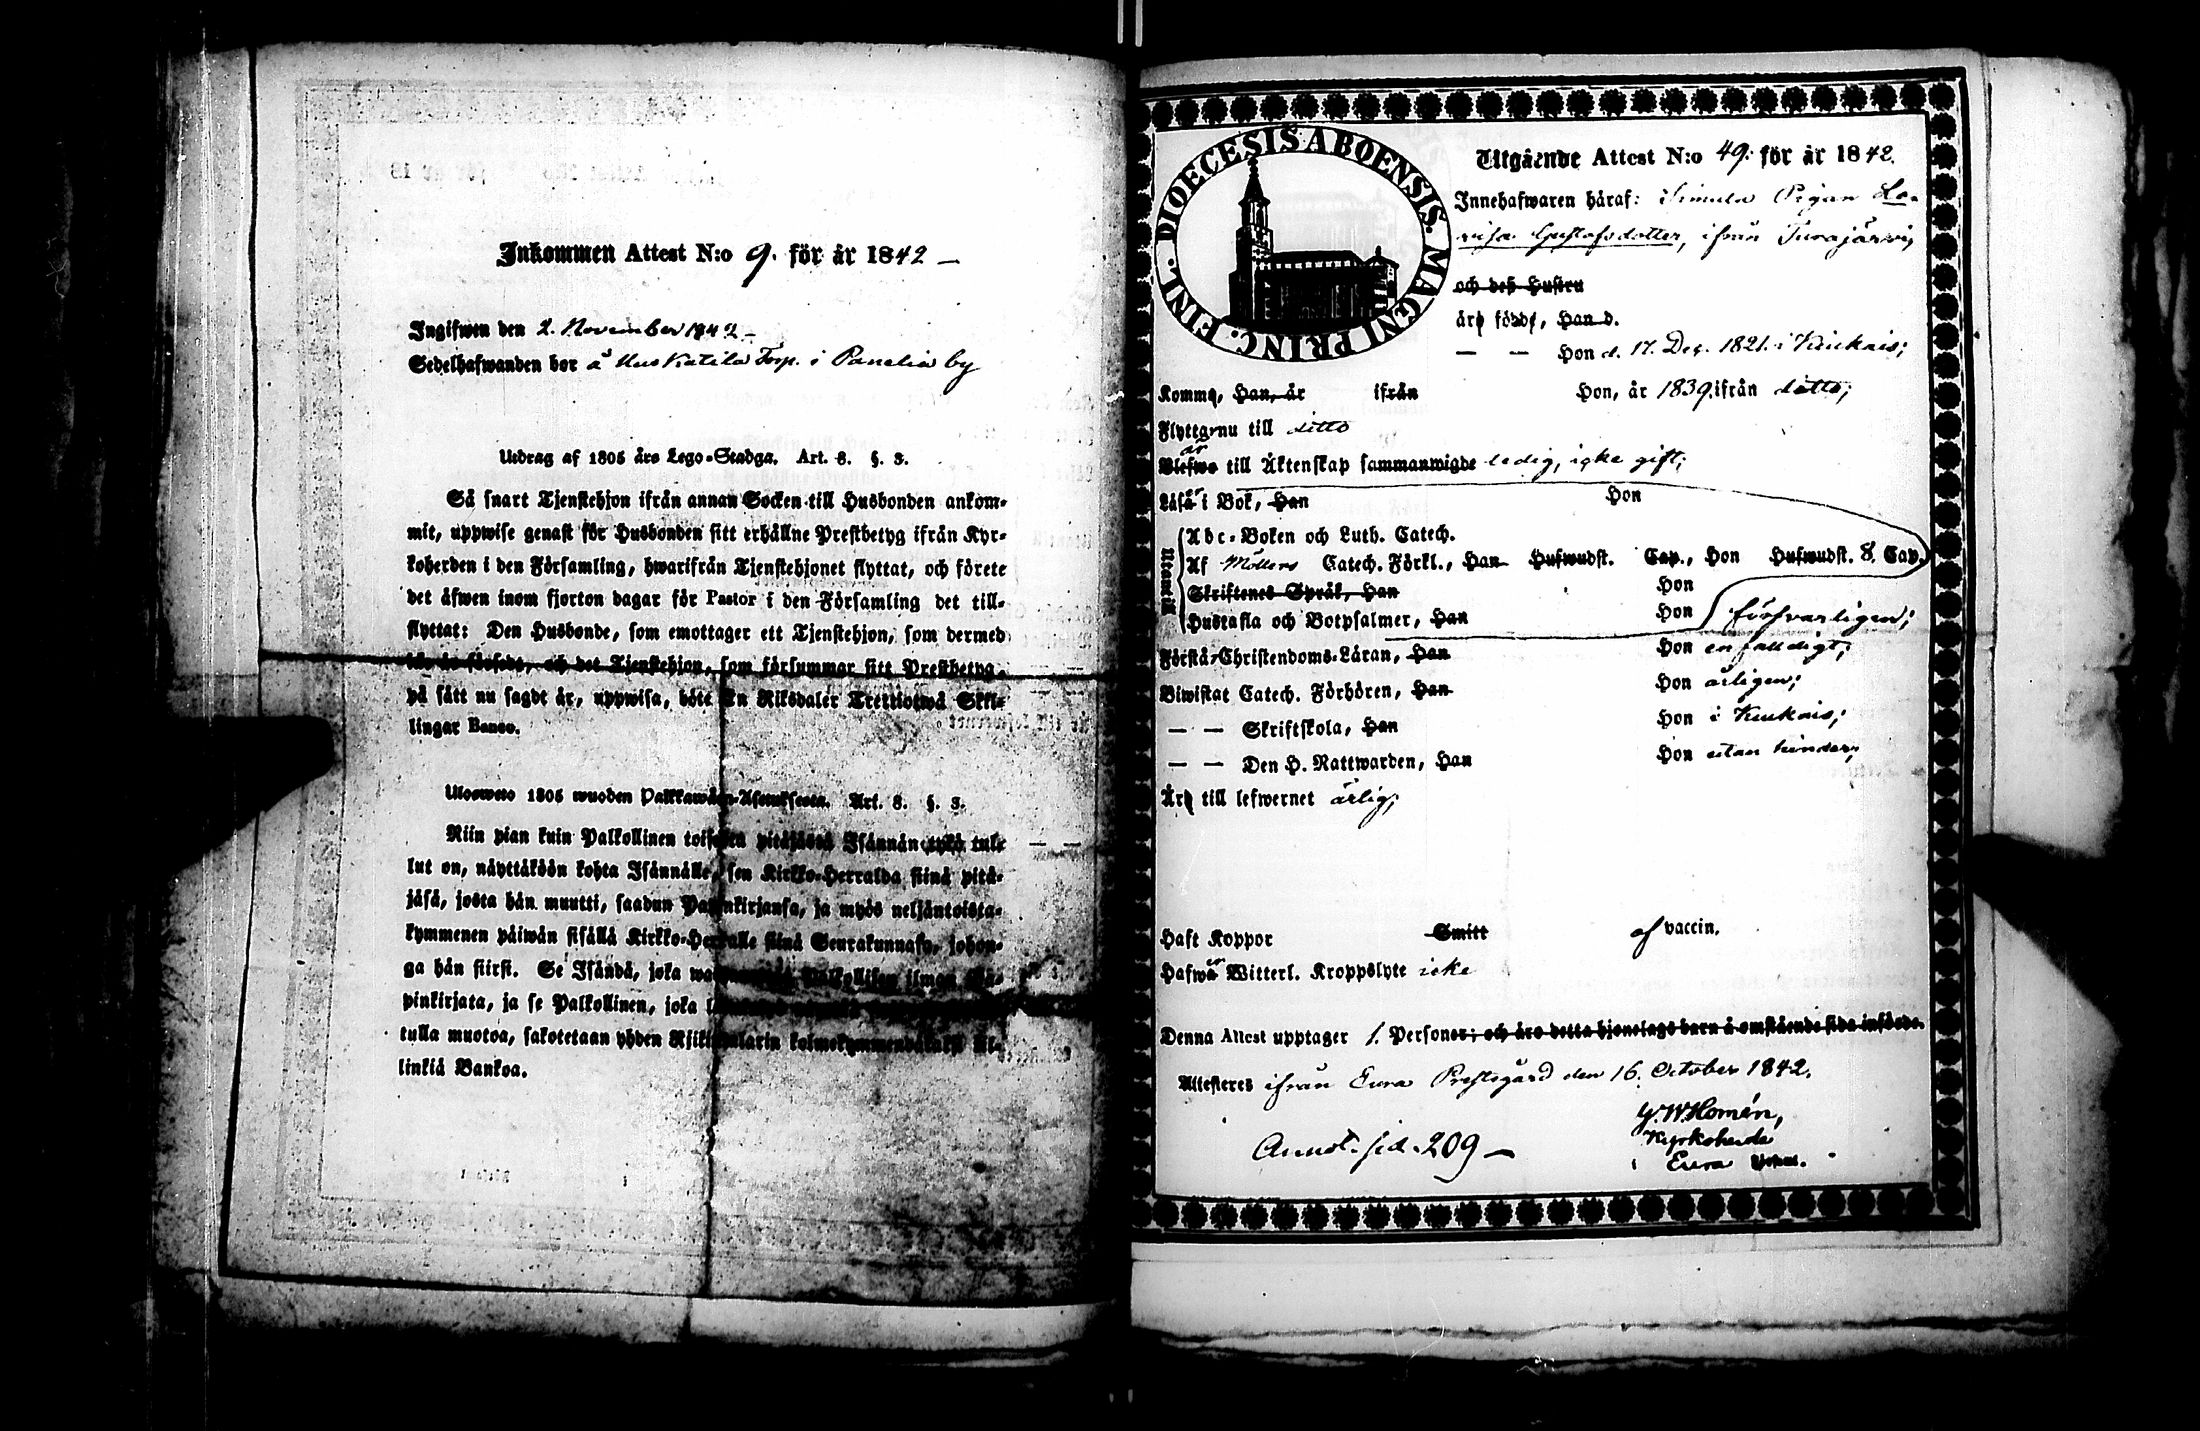 Inkommen Attest N:o 9. för år 1842 —
Ingifwen den 2. November 1842 —
Sedelhafwanden bor å Uuskatila Torp. i Panelia by
Utdrag af 1805 års Lego-Stadga. Art. 8. §. 3.
Så snart Tjenstehjon ifrån annan Socken till Husbonden ankom-
mit, uppwise genast för Husbonden sitt erhållne Prestbetyg ifrån Kyr-
koherden i den Församling, hwarifrån Tjenstehjonet flyttat, och förete
det äfwen inom fjorton dagar för Pastor i den Församling det till-
flyttat: Den Husbonde, som emottager ett Tjenstehjon, som dermed
och det Tjenstehjon, som försummar sitt Prestbetyg,
på sätt nu sagdt är, uppwisa, böte En Riksdaler Trettiotwå Skil-
lingar Banco.
Ulosweto 1805 wuoden Palkkawäen-Asetuksesta. Art. 8. §. 3.
Niin pian kuin Palkollinen toisesta pitäjästä Isännän tykö tul-
lut on, näyttäköön kohta Isännälle, sen Kirkko-Herralda siinä pitä-
jäsä, josta hän muutti, saadun Papinkirjansa, ja myös neljäntoista-
kymmenen päiwän sisällä Kirkko-Herralle siinä Seurakunnasa, johon-
ga hän siirsi. Se Isändä, joka Palkollisen ilman Pa-
pinkirjata, ja se Palkollinen, joka
tulla muotoa, sakotetaan yhden Rjikintalarin kolmekymmendäkaksi Kil-
linkiä Bankoa.
DIOECESIS ABOENSIS. MAGNI PRINC. FINL.
Utgående Attest N:o 49. för år 1842.
Innehafwaren häraf: Simula Pigan Lo-
visa Gustafsdotter, ifrån Turajärvi,
och dess Hustru
äro född, Han d.
— — Hon d. 17. Dec. 1821. i Kiukais;
Komma, Han, år ifrån Hon, år 1839. ifrån ditto;
Flyttar nu till ditto
är
Blefwo till Äktenskap sammanwigde ledig, icke gift;
Läsa i Bok, Han Hon
Utantill
Abc-Boken och Luth. Catech.
Af Möllers Catech. Förkl., Han Hufwudst. Cap., Hon Hufwudst. 8. Cap.
Skriftenes Språk, Han Hon
Hustafla och Botpsalmer, Han Hon försvarligen;
Förstå Christendoms-Läran, Han Hon enfalldigt;
Biwistat Catech. Förhören, Han Hon årligen;
— — Skriftskola, Han Hon i Kiukais;
— — Den H. Nattwarden, Han Hon utan hinder;
Äro till lefwernet ärlig;
Haft Koppor Smitt af vaccin.
Hafwa Witterl. Kroppslyte icke
Denna Attest upptager 1. Personer; och äro detta hjonelags barn å omstående sida införde.
Attesteres ifrån Eura Prestegård den 16. October 1842.
G. W. Homén,
Kyrkoherde
i Eura
Annot. sid. 209 —